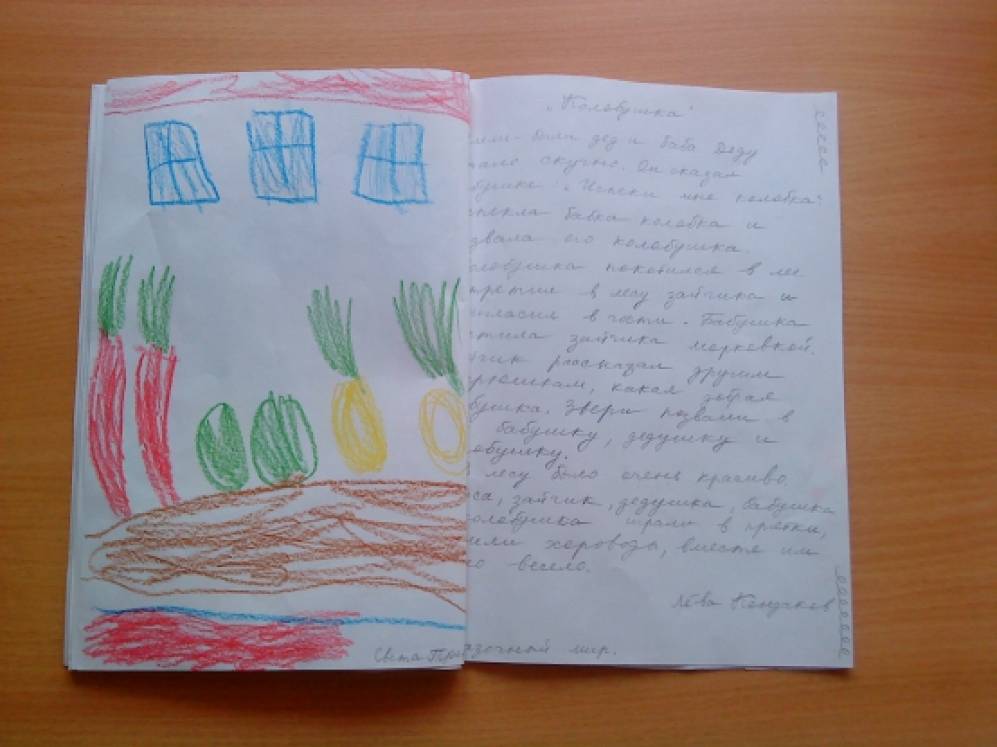 „Колобушка"
или-были дед и баба Деду
тало скучно. Он сказал
бушке: „Испеки мне колобка"
спекла бабка колобка и
звала его колобушка.
олобушка покатился в лес
третил в лесу зайчика и
игласил в гости. Бабушка
стила зайчика морковкой.
йчик рассказал другим
рюшкам, какая добрая
бушка. Звери позвали в
бабушку, дедушку и
обушку.
лесу было очень красиво.
са, зайчик, дедушка, бабушка
олобушка играли в прятки,
или хороводы, вместе им
ло весело.
Лёва
Света
зочный мир.